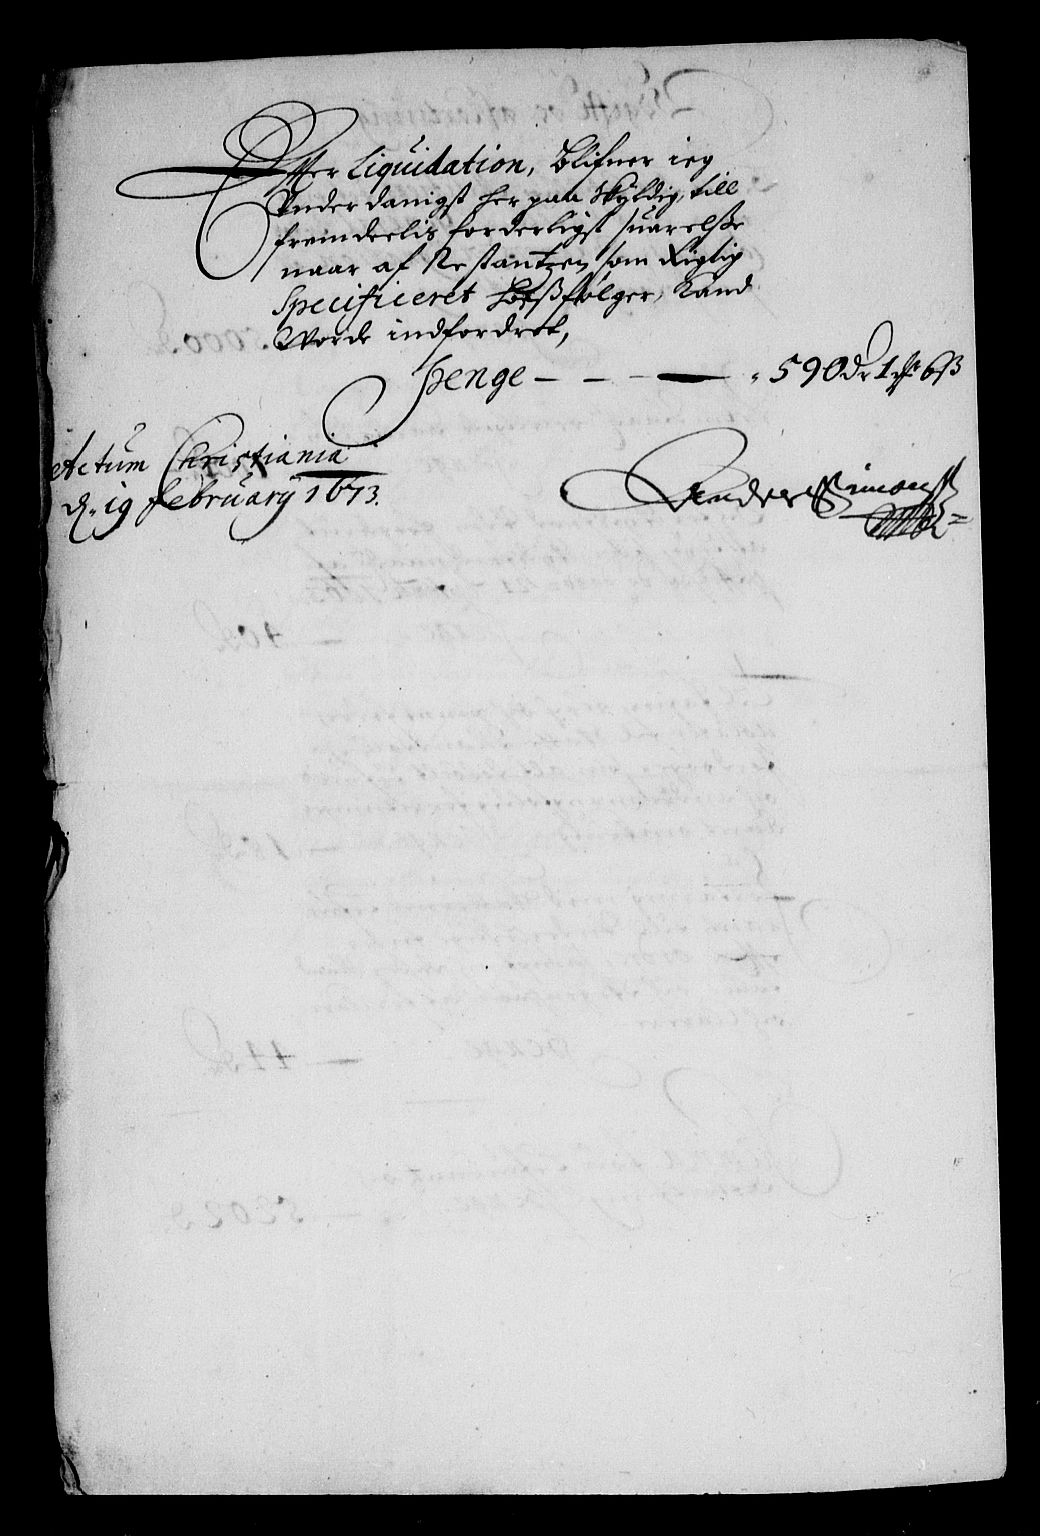 Effter Liquidation, blifuer ieg
Underdanigst her paa Skyldig, till
fremdeelis forderligst suarelsse
naar af Restantzen som Rigtig
Specificeret hosfølger, Kand
Worde indfordret,
Penge — — — — 590 dr 1 ₰ 6 β
Actum Christiania
d. 19 February 1673.
Anders Simonß